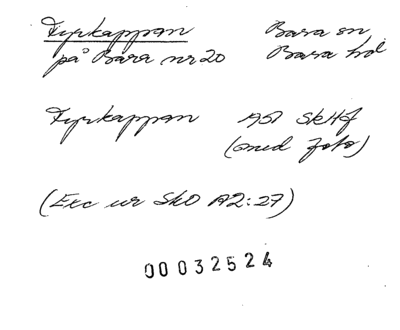 Fyrkappan Bara sn
på Bara nr 20 Bara hd
Fyrkappan 1951 SkHf
(med foto)
(Exc ur SkO A2:27)
00032524